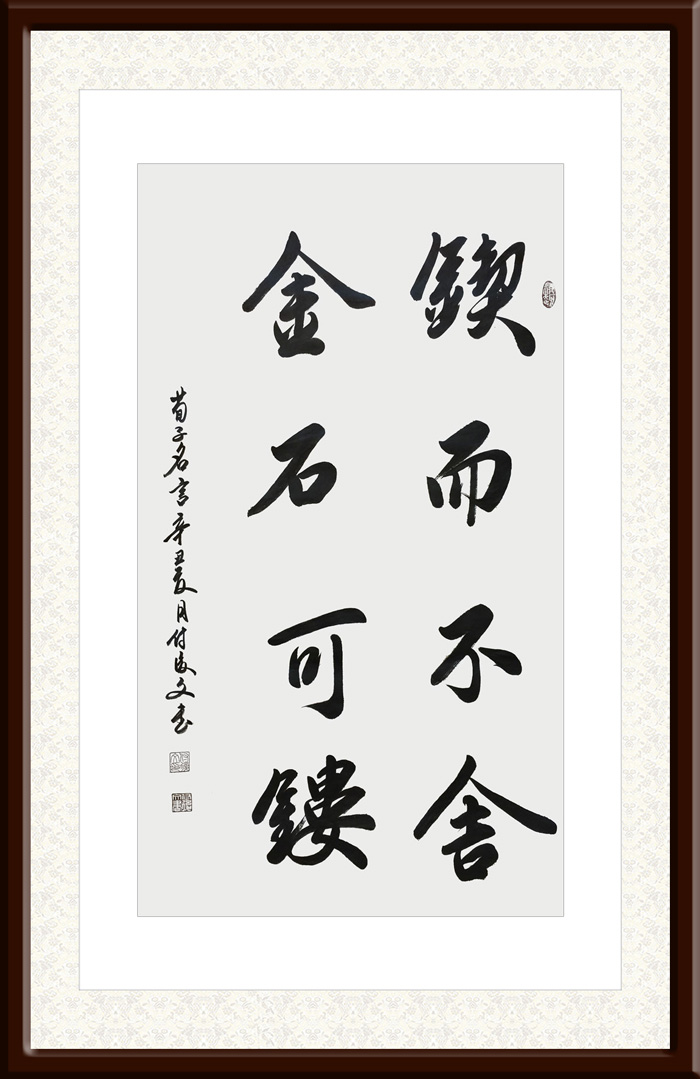 鍥而不舍
金石可鏤
荀子名言辛丑夏月付俊文书